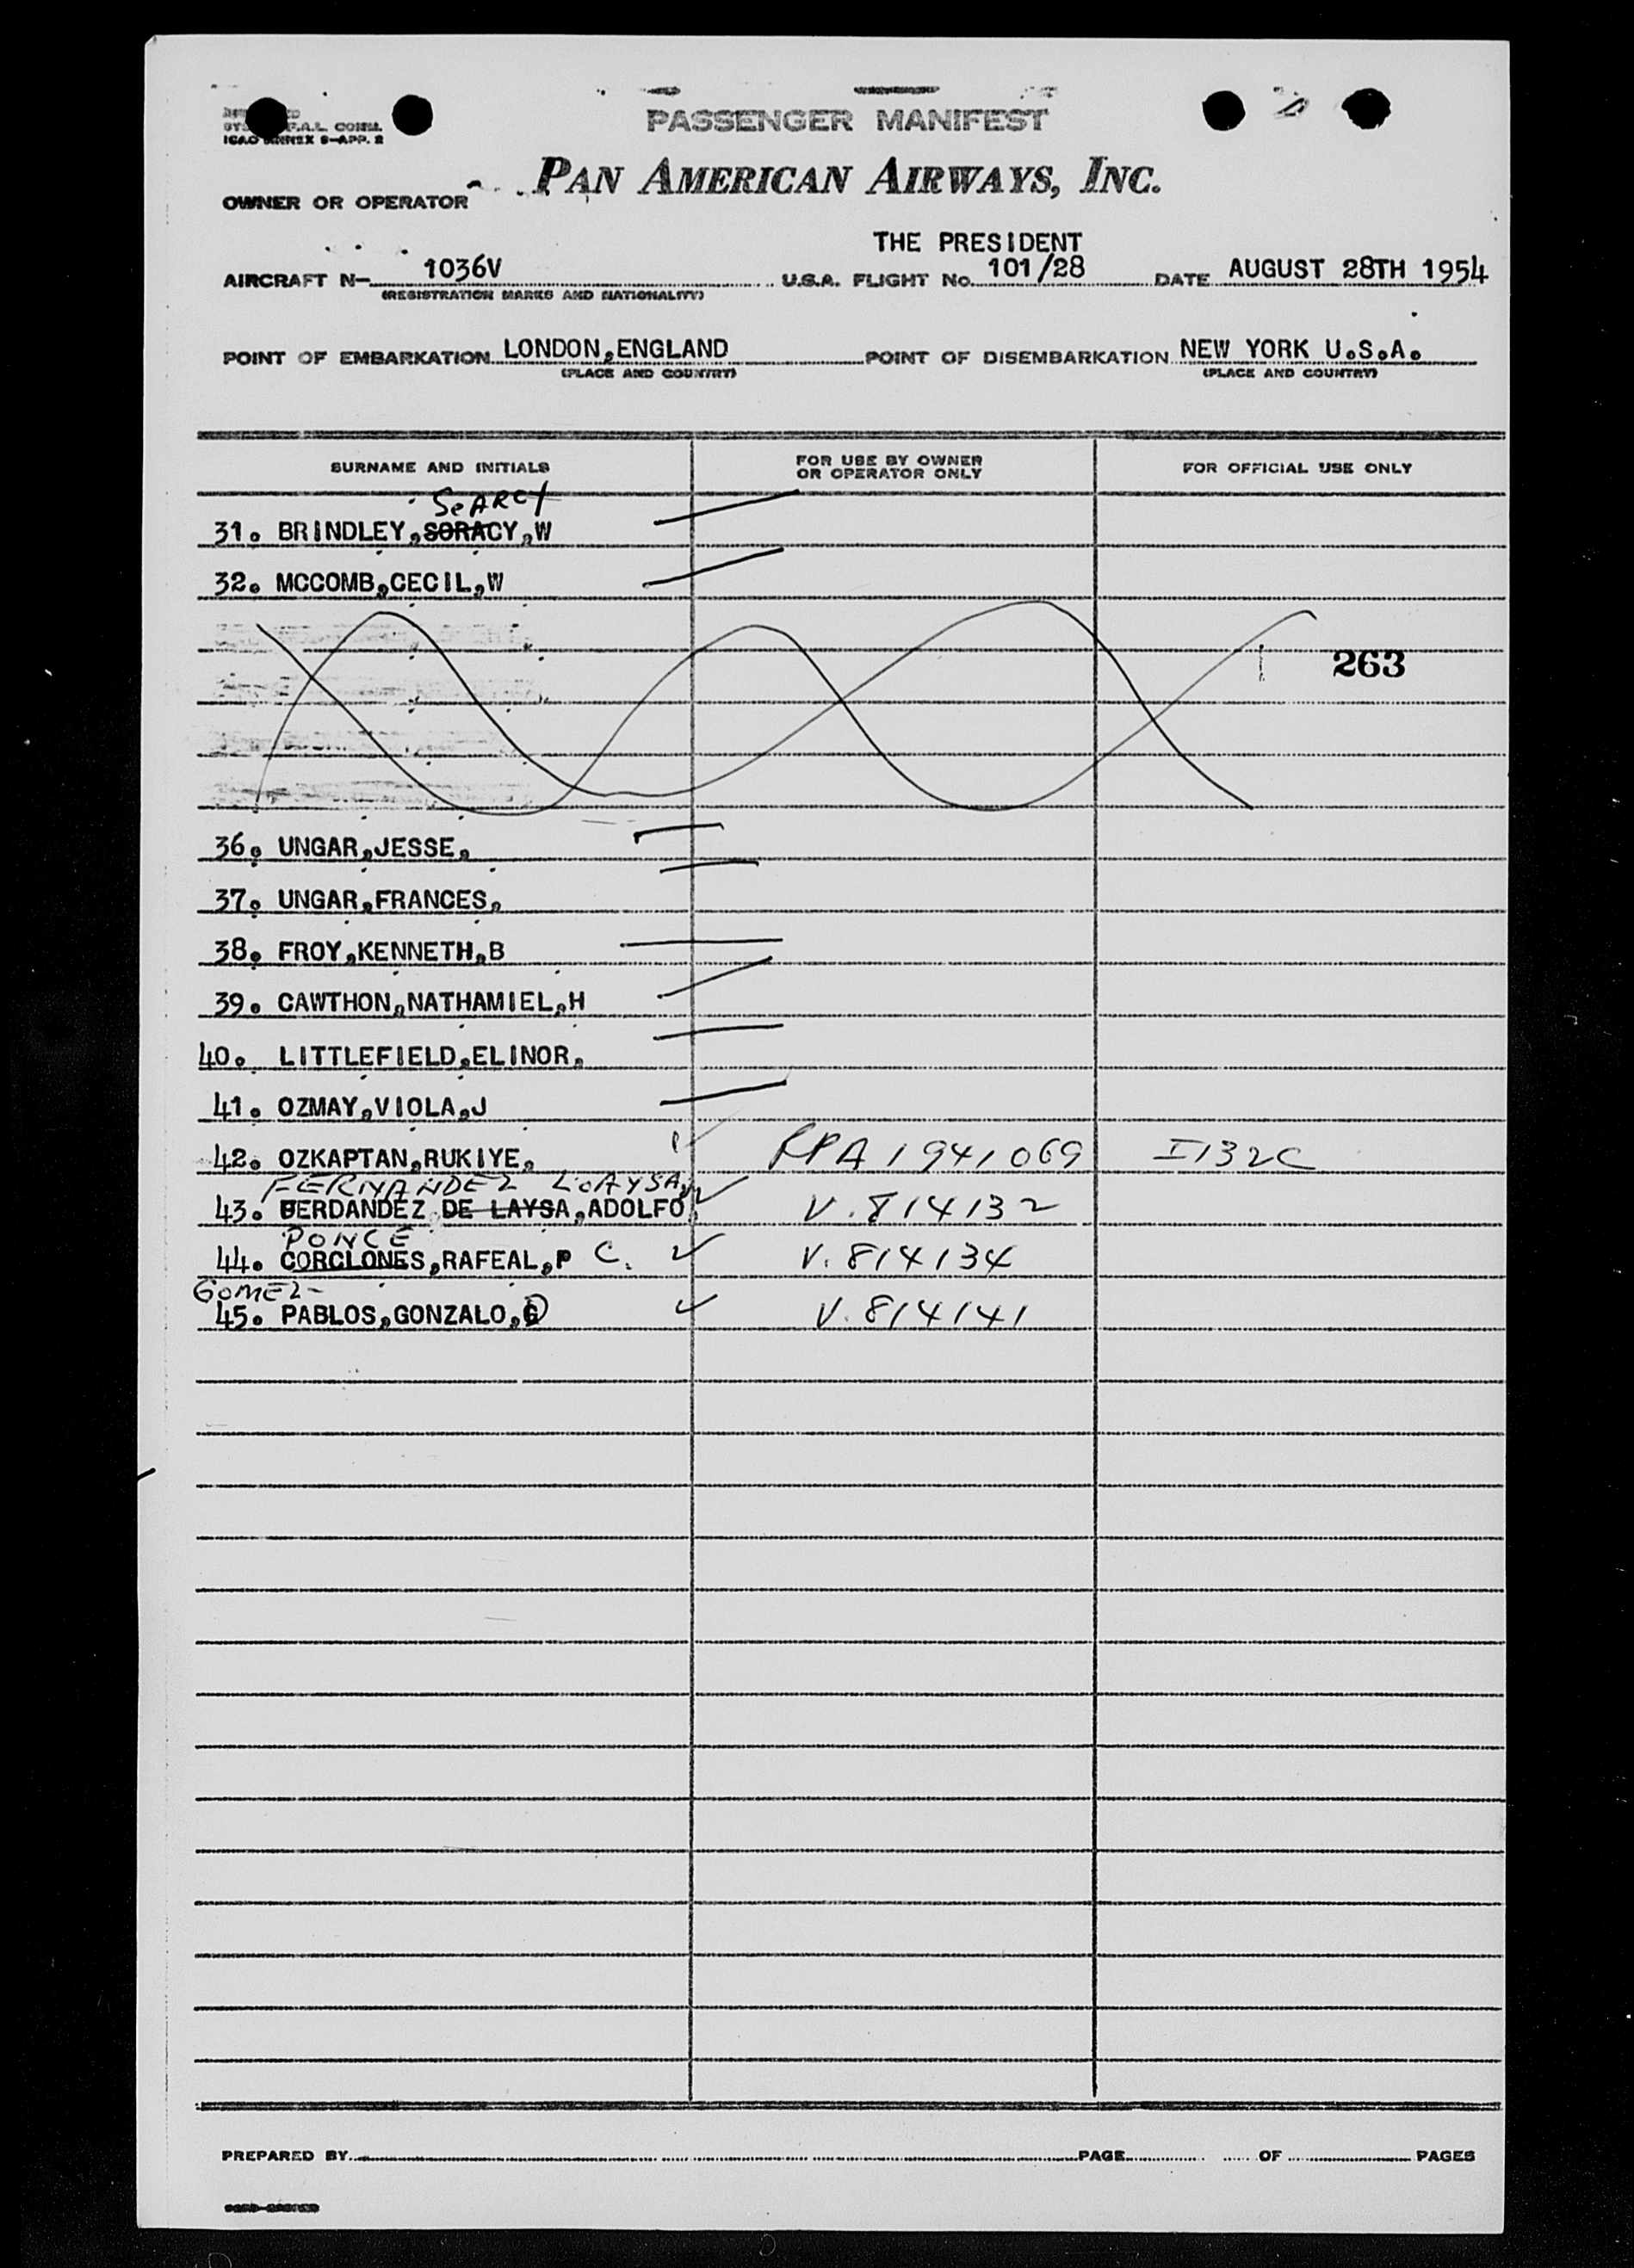 F.A.L. COMM.
ICAO ANNEX 9-APP. 2
PASSENGER MANIFEST
PAN AMERICAN AIRWAYS, INC.
OWNER OR OPERATOR
THE PRESIDENT
AIRCRAFT N- 1036V U.S.A. FLIGHT No. 101/28 DATE AUGUST 28TH 1954
(REGISTRATION MARKS AND NATIONALITY)
POINT OF EMBARKATION LONDON,ENGLAND POINT OF DISEMBARKATION NEW YORK U.S.A.
(PLACE AND COUNTRY) (PLACE AND COUNTRY)
SURNAME AND INITIALS FOR USE BY OWNER OR OPERATOR ONLY FOR OFFICIAL USE ONLY
SeARCY
31. BRINDLEY,SORACY,W
32. MCCOMB,CECIL,W
263
36. UNGAR,JESSE,
37. UNGAR,FRANCES,
38. FROY,KENNETH,B
39. CAWTHON,NATHAMIEL,H
40. LITTLEFIELD,ELINOR,
41. OZMAY,VIOLA,J
42. OZKAPTAN,RUKIYE, RPA 1941069 I132C
FERNANDEZ LOAYSA,
43. BERDANDEZ DE LAYSA,ADOLFO V. 814132
PONCE
44. CORCLONES,RAFEAL,P C. V. 814134
GOMEZ-
45. PABLOS,GONZALO,G V. 814141
PREPARED BY PAGE OF PAGES